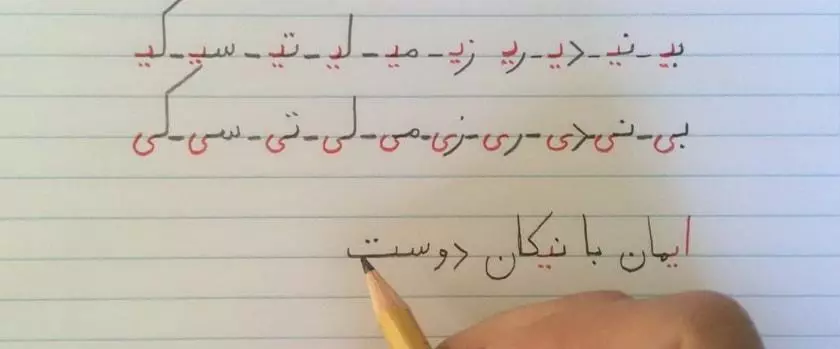 بیـ ـ نیـ ـ دیـ ـ ریـ زیـ ـ میـ ـ لیـ ـ تیـ ـ سیـ ـ کیـ
بی ـ نی ـ دی ـ ری ـ زی ـ می ـ لی ـ تی ـ سی ـ کی
ایمان با نیکان دوست